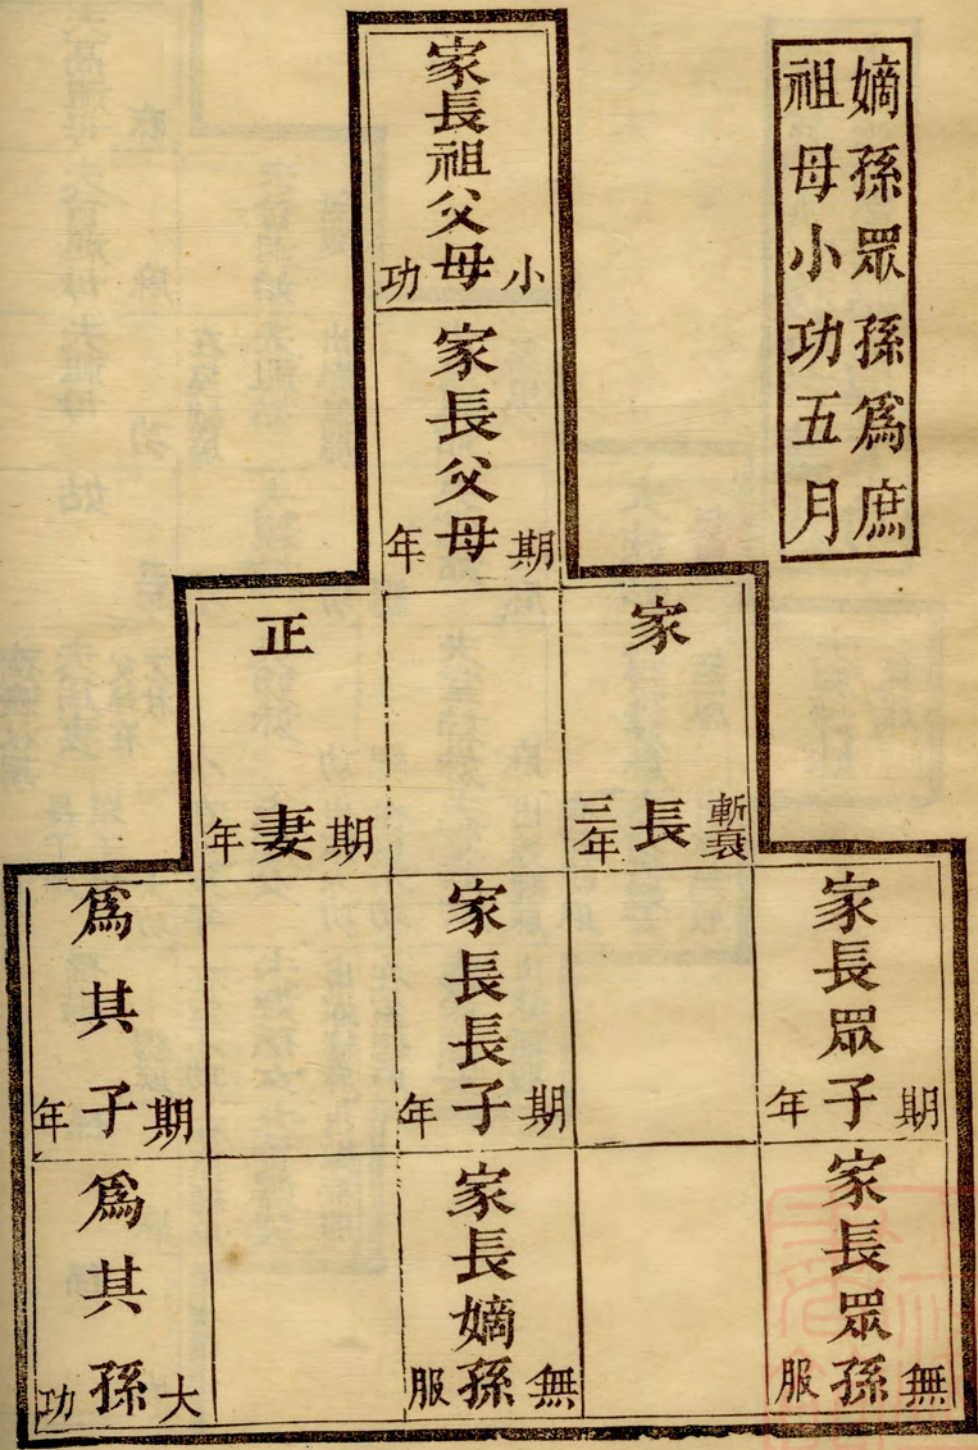 嫡孫眾孫爲庶
祖母小功五月
家長祖父母
小功
家長父母
期年
家長
斬衰三年
正妻
期年
家長眾子
期年
家長長子
期年
爲其子
期年
家長眾孫
無服
家長嫡孫
無服
爲其孫
大功